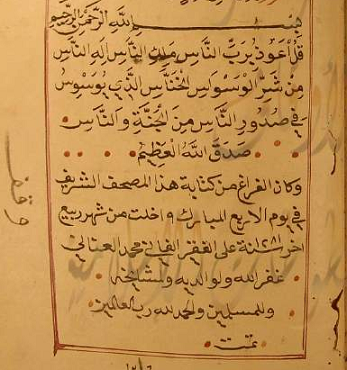 بسم الله الرحمن الرحيم
قل اعوذ برب الناس ملك الناس اله الناس
من شر الوسواس الخناس الذي يوسوس
في صدور الناس من الجنة والناس
صدق الله العظيم
وكان الفراغ من كتابة هذا المصحف الشريف
في يوم الاربع المبارك واخلت من شهر ربيع
اخر ١٢٨١ سنة على الفقر الفاني محمد
غفر الله ولوالديه ومشايخه
وللمسلمين والحمد لله رب العالمين
تمت
وقف